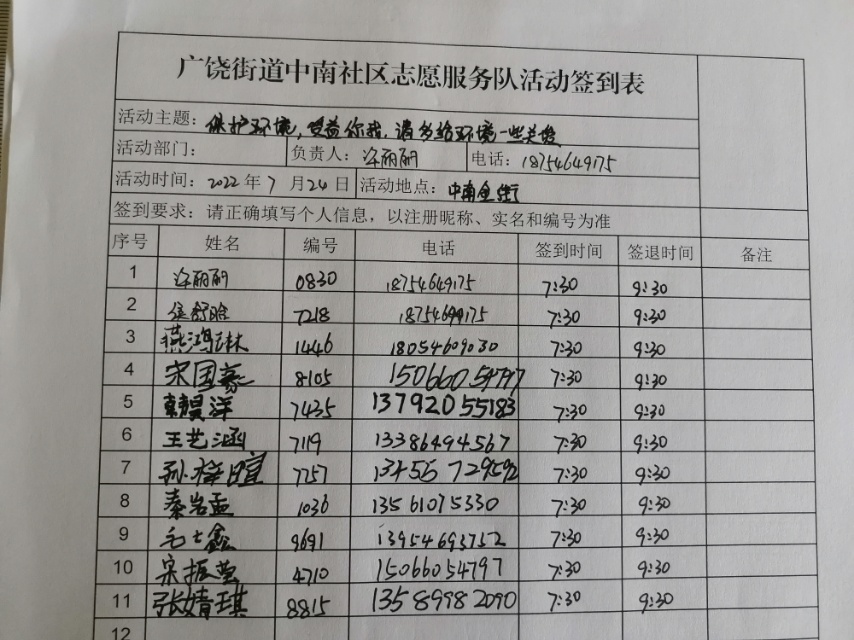 广饶街道中南社区志愿服务队活动签到表
活动主题：保护环境，受益你我，请多给环境一些关爱
活动部门： 负责人：许丽丽 电话：18754649175
活动时间：2022年7月24日 活动地点：中南金街
签到要求：请正确填写个人信息，以注册昵称、实名和编号为准
序号 姓名 编号 电话 签到时间 签退时间 备注
1 许丽丽 0830 18754649175 7:30 9:30
2 侯舒晗 7218 18754649175 7:30 9:30
3 燕鸿林 1446 18054609030 7:30 9:30
4 宋国豪 8105 15066054797 7:30 9:30
5 韩昊洋 7435 13792055183 7:30 9:30
6 王艺涵 7119 13386494567 7:30 9:30
7 孙梓暄 7257 13456729592 7:30 9:30
8 秦岩孟 1036 13561075330 7:30 9:30
9 毛士鑫 9691 13954693752 7:30 9:30
10 宋振莹 4710 15066054797 7:30 9:30
11 张婧琪 8815 13589982090 7:30 9:30
12